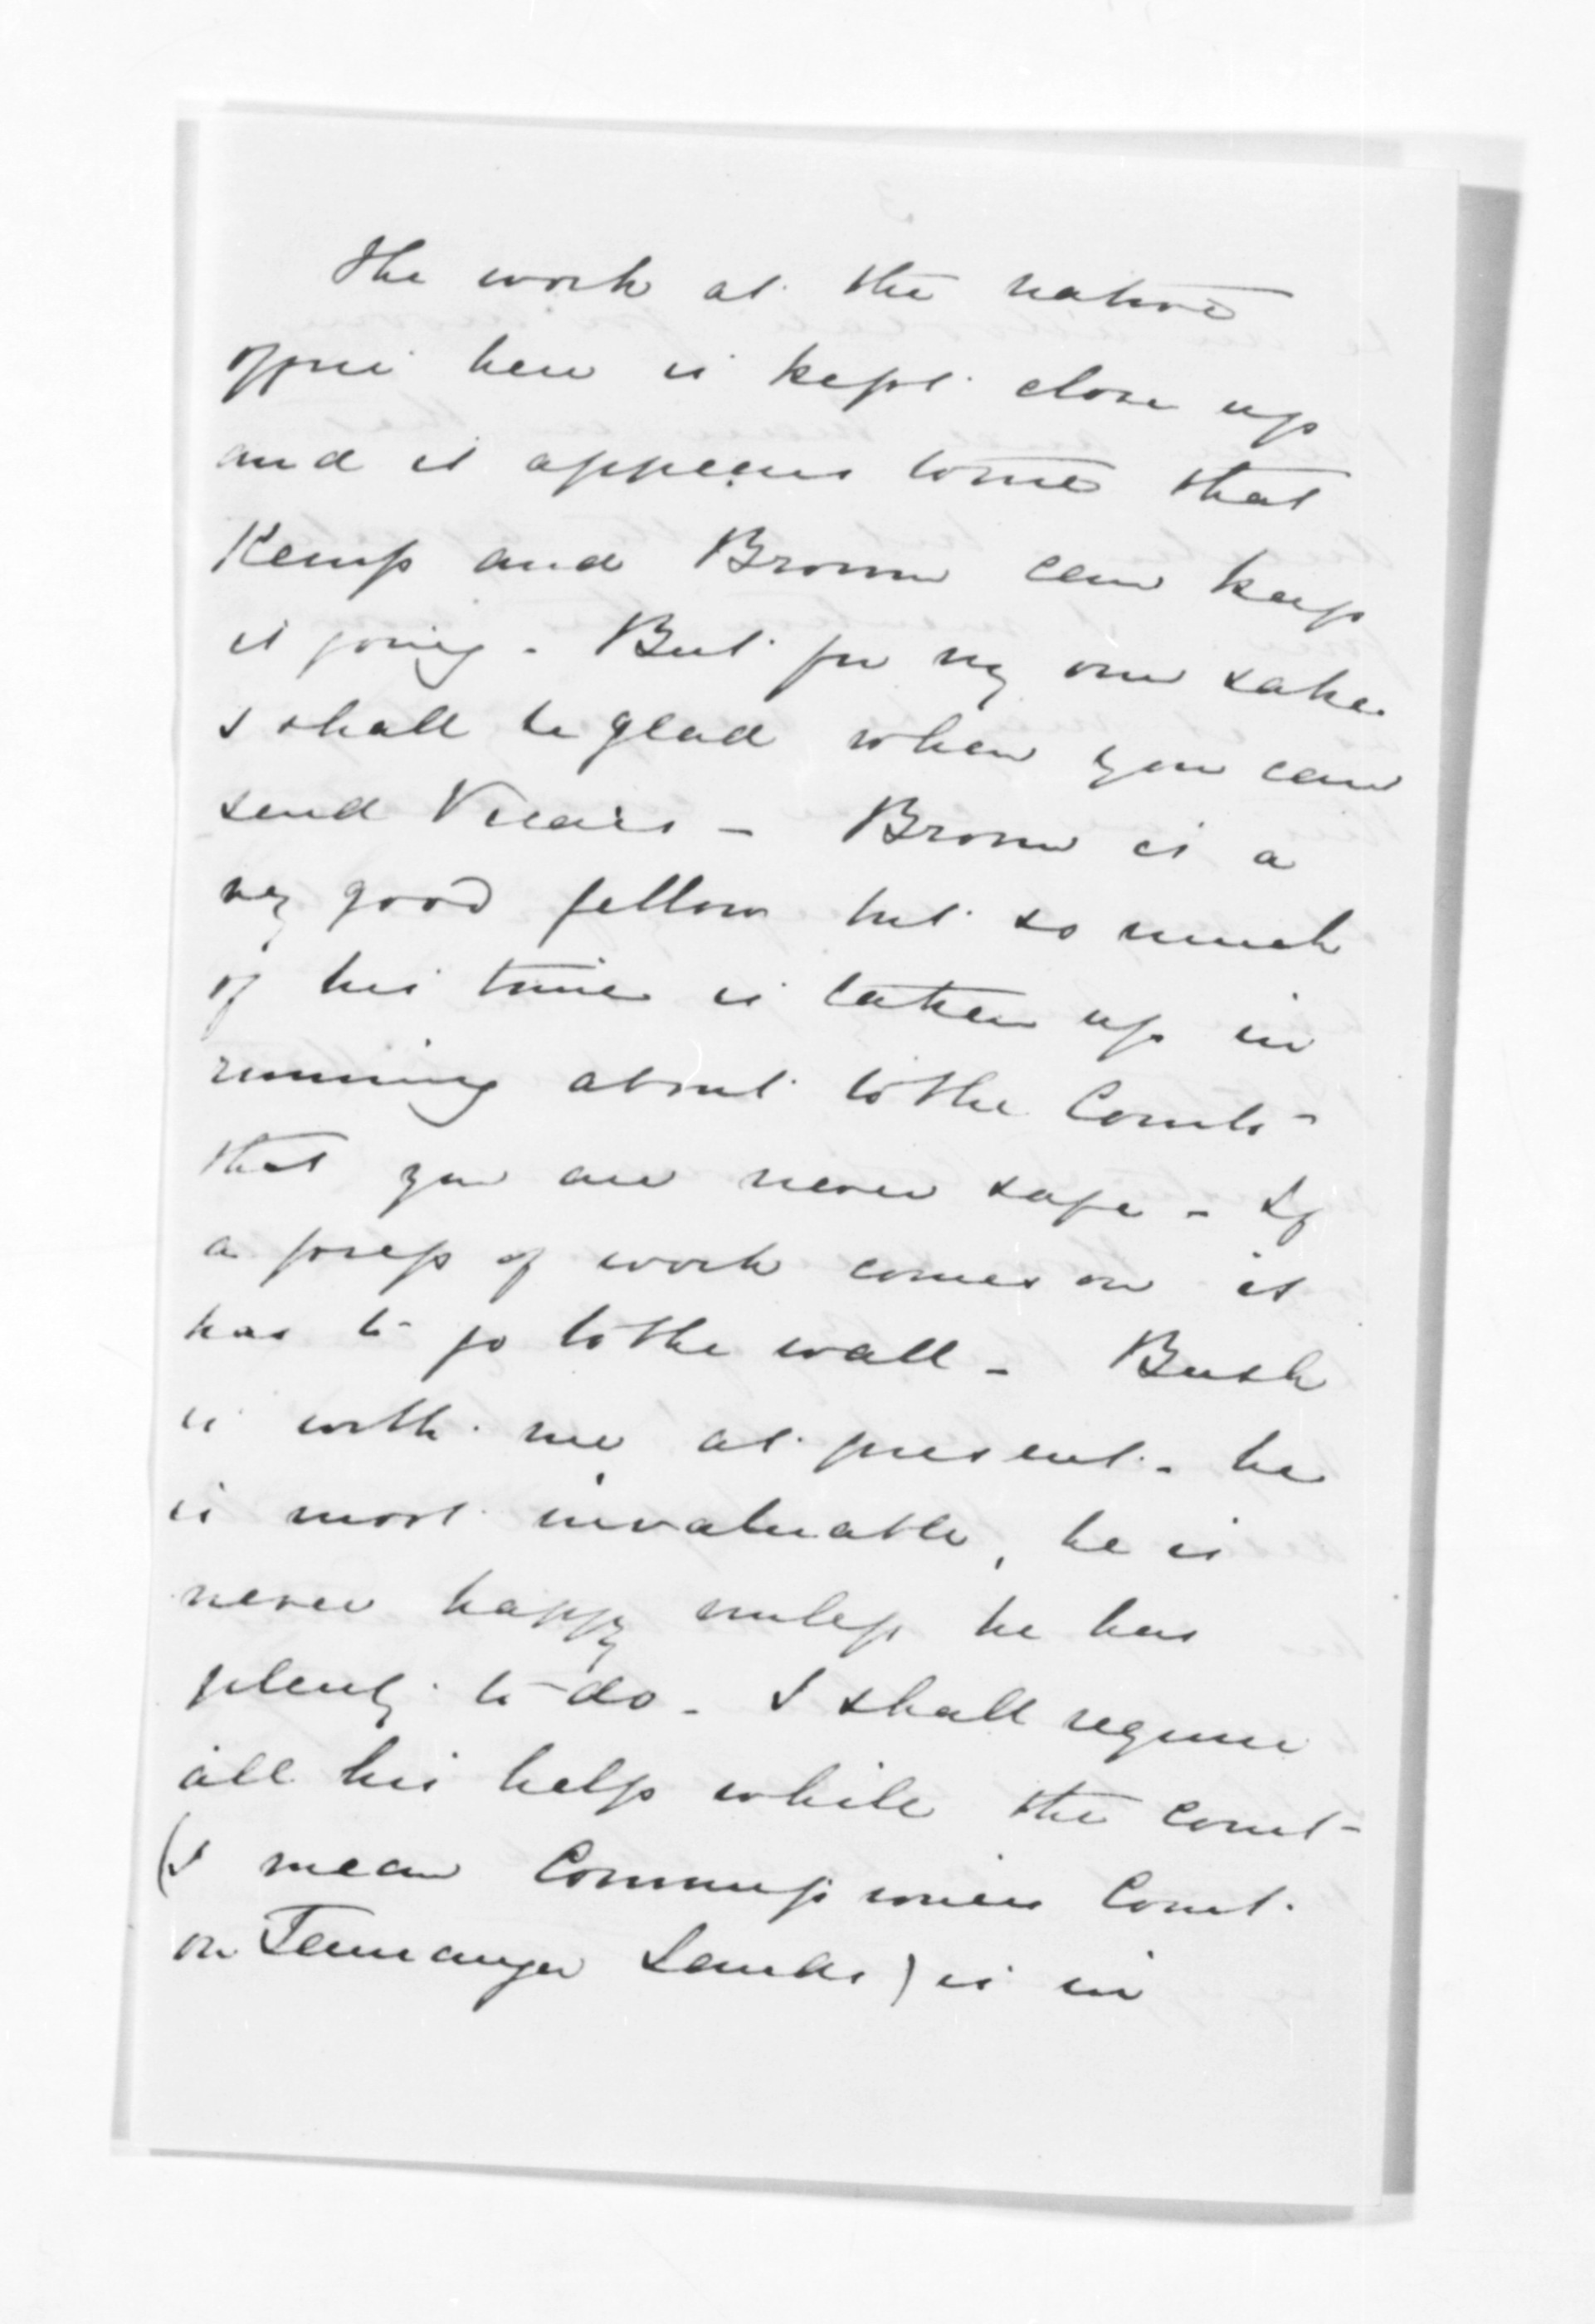 The work at the native
office here is kept close up
and it appears to me that
Kemp and Brown can keep
it going - But for my own sake
I shall be glad when you can
send - Brown is a
very good fellow but so much
of his time is taken up in
running about to the Courts -
that you are never safe - If
a press of work comes on it
has to go to the wall - Bush
is with me at present - he
is most invaluable, he is
never happy unless he has
plenty to do - I shall require
all his help while the Court -
(I mean Commissioners Court
on Tauranga Lands) is in